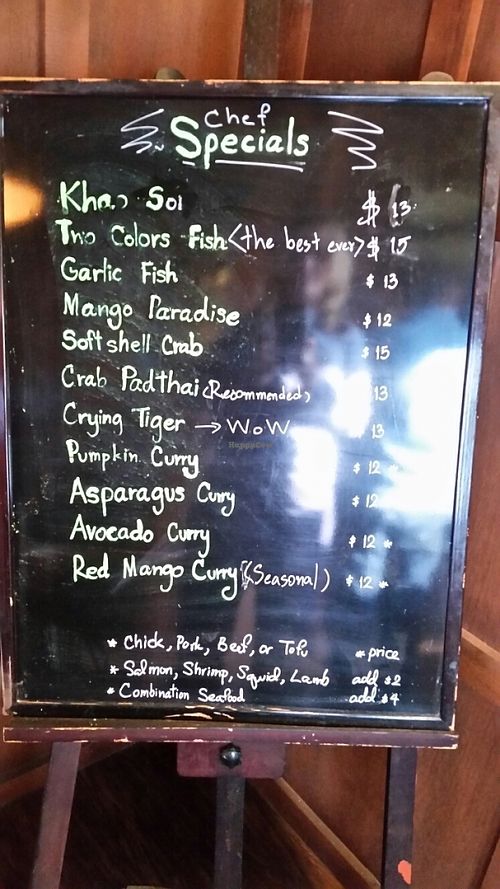 Chef
Specials
Khao Soi $ 13
Two Colors Fish <the best ever> $ 15
Garlic Fish $ 13
Mango Paradise $ 12
Soft shell Crab $ 15
Crab Padthai (Resommended) 13
Crying Tiger → WoW 13
Pumpkin Curry $ 12 *
Asparagus Curry $ 12
Avocado Curry $ 12 *
Red Mango Curry (Seasonal) $ 12 *
* Chick, Pork, Beef, or Tofu * price
* Salmon, Shrimp, Squid, Lamb add $2
* Combination Seafood add $4
HappyCow